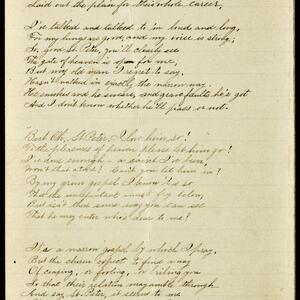 Laid out the plan for their whole career,
I've talked and talked to 'em loud and long,
For my lungs are good, and my voice is strong,
So, good St. Peter, you'll clearly see
The gate of heaven is open for me,
But my old man I regret to say,
Hasn't walked in exactly the narrow way.
He smokes and he swears, and grave faults he's got
And I don't know whether he'll pass or not.
But Oh, St. Peter, I love him, so!
To the pleasures of heaven please let him go!
I've done enough - a saint I've been,
Won't that atone? Can't you let him in?
By my grim gospel I know 'tis so
That the unrepentant must fry below,
But isn't there some way you can see
That he may enter who's dear to me?
It's a narrow gospel by which I pray,
But the chosen expect to find a way
Of coaxing, or fooling, or bribing you
So that their relation may amble through
And say, St. Peter, it seems to me